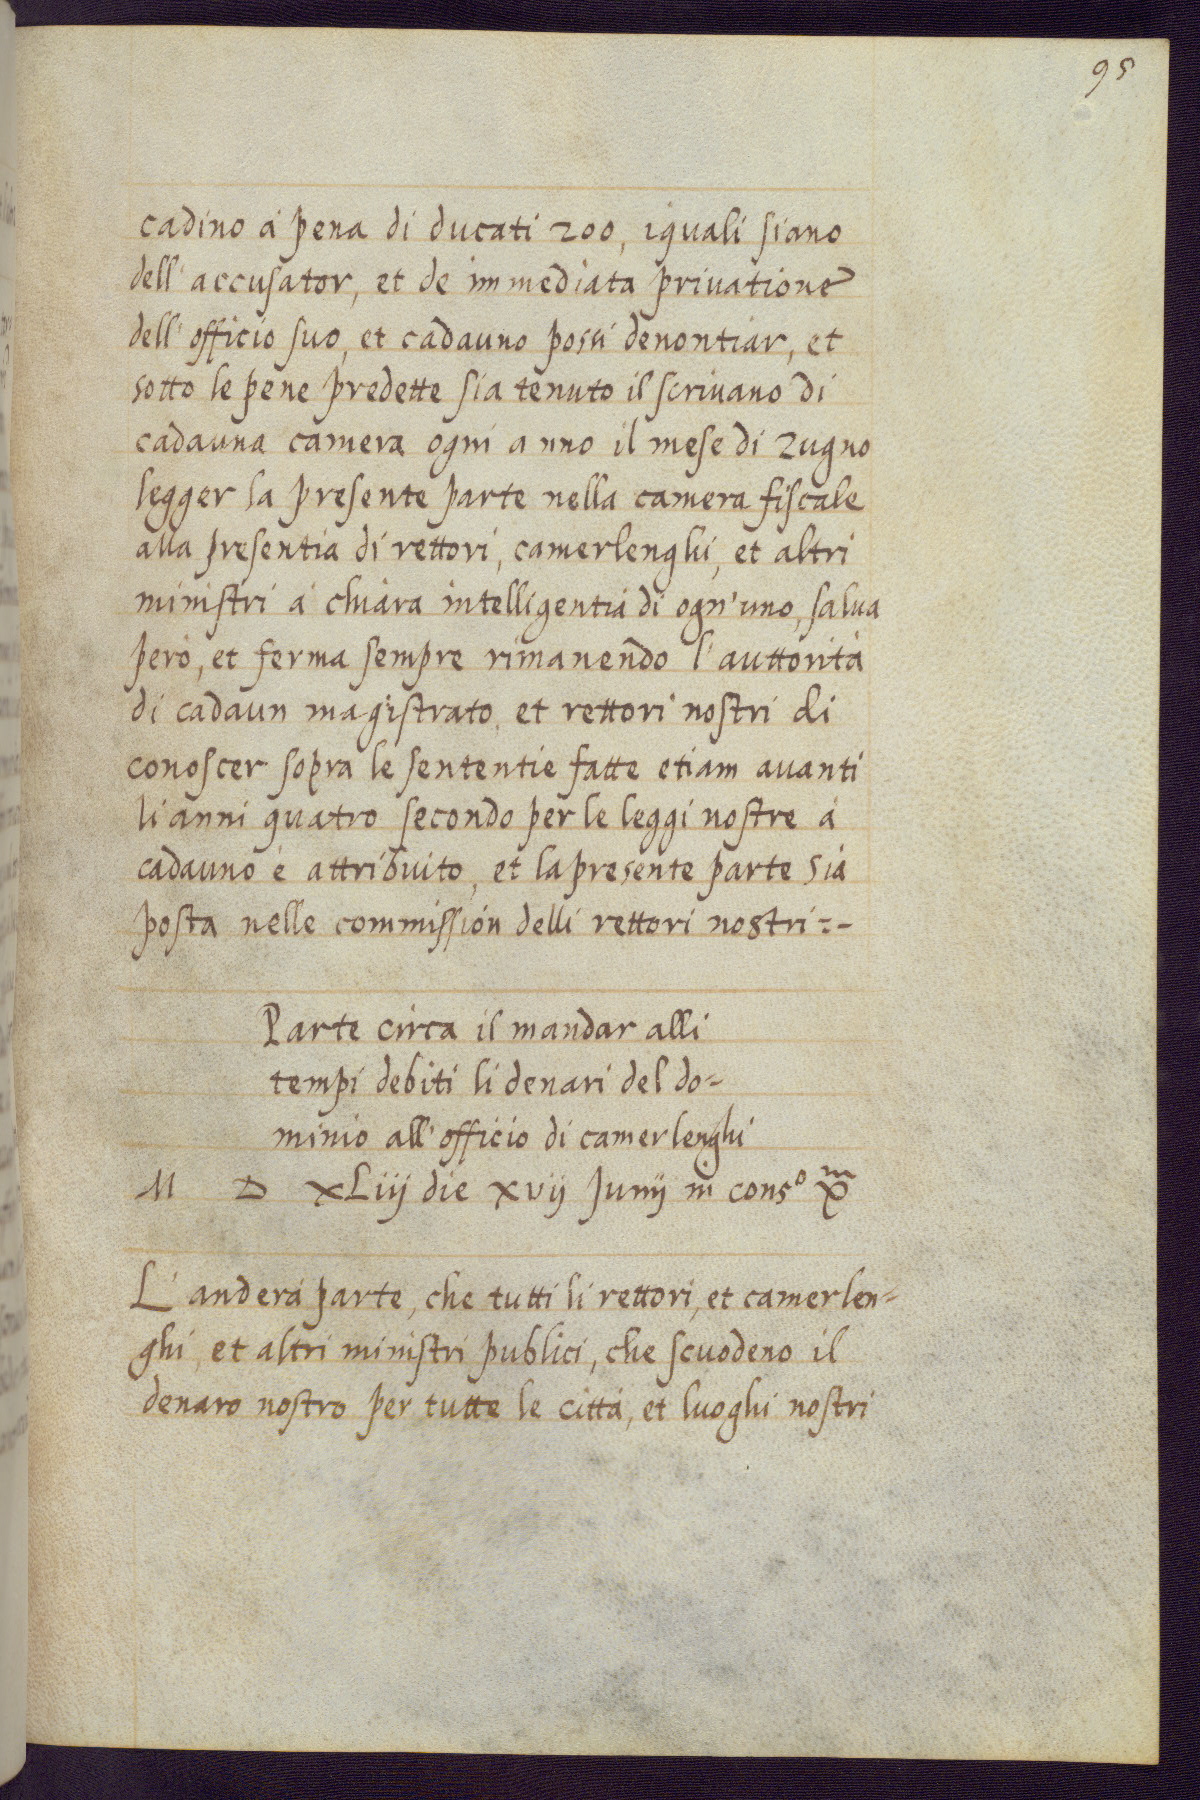 95
cadino à pena di ducati 200, iquali siano
dell'accusator, et de immediata privatione
dell'officio suo, et cadauno possi denontiar, et
sotto le pene predette sia tenuto il scrivano di
cadauna camera ogni anno il mese di Zugno
legger la presente parte nella camera fiscale
alla presentia di rettori, camerlenghi, et altri
ministri à chiara intelligentia di ogn'uno, salva
però, et ferma sempre rimanendo l'auttorità
di cadaun magistrato, et rettori nostri di
conoscer sopra le sententie fatte etiam avanti
li anni quatro secondo per le leggi nostre à
cadauno è attribuito, et la presente parte sia
posta nelle commission delli rettori nostri:-
Parte circa il mandar alli
tempi debiti li denari del do-
minio all'officio di camerlenghi
M D XLiij die xvij Junij in cons.º X.m
L'anderà parte, che tutti li rettori, et camerlen-
ghi, et altri ministri publici, che scuodeno il
denaro nostro per tutte le città, et luoghi nostri